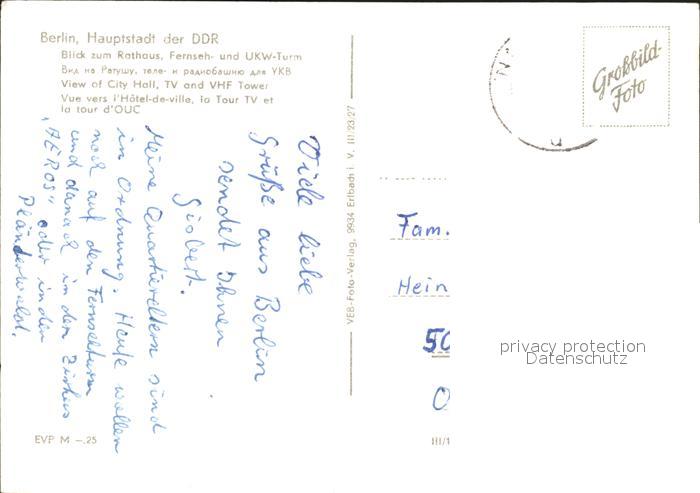 Berlin, Hauptstadt der DDR
Blick zum Rathaus, Fernseh- und UKW-Turm
Вид на Ратушу, теле- и радиобашню для УКВ
View of City Hall, TV and VHF Tower
Vue vers l'Hôtel-de-ville, la Tour TV et
la tour d'OUC
Viele liebe
Grüße aus Berlin
sendet Ihnen
Gisbert.
Meine Quartiereltern sind
in Ordnung. Heute wollen
noch auf den Fernsehturm
und danach in den Zirkus
"AEROS" oder in den
Plänterwald.
EVP M –.25
VEB-Foto-Verlag, 9934 Erlbach i. V. III/23/27
III/1
Großbild-
Foto
Fam.
Hein
50
O
privacy protection
Datenschutz